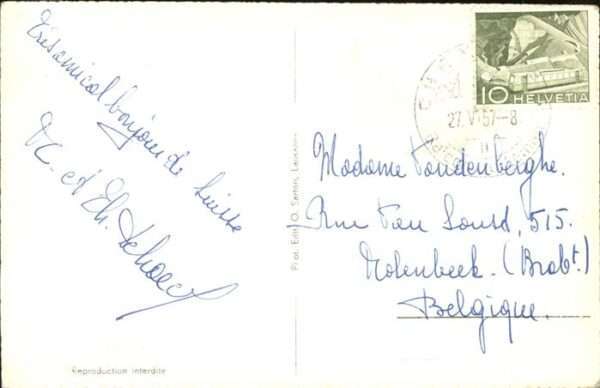 Très amical bonjour de Suisse
et Th. Schaeck
10 HELVETIA
27.V.57-8
Madame Vandenberghe.
Rue Van Soust, 515.
Molenbeek. (Brabt.)
Belgique.
Phot. Edit. O. Sartori, Lausanne
Reproduction interdite